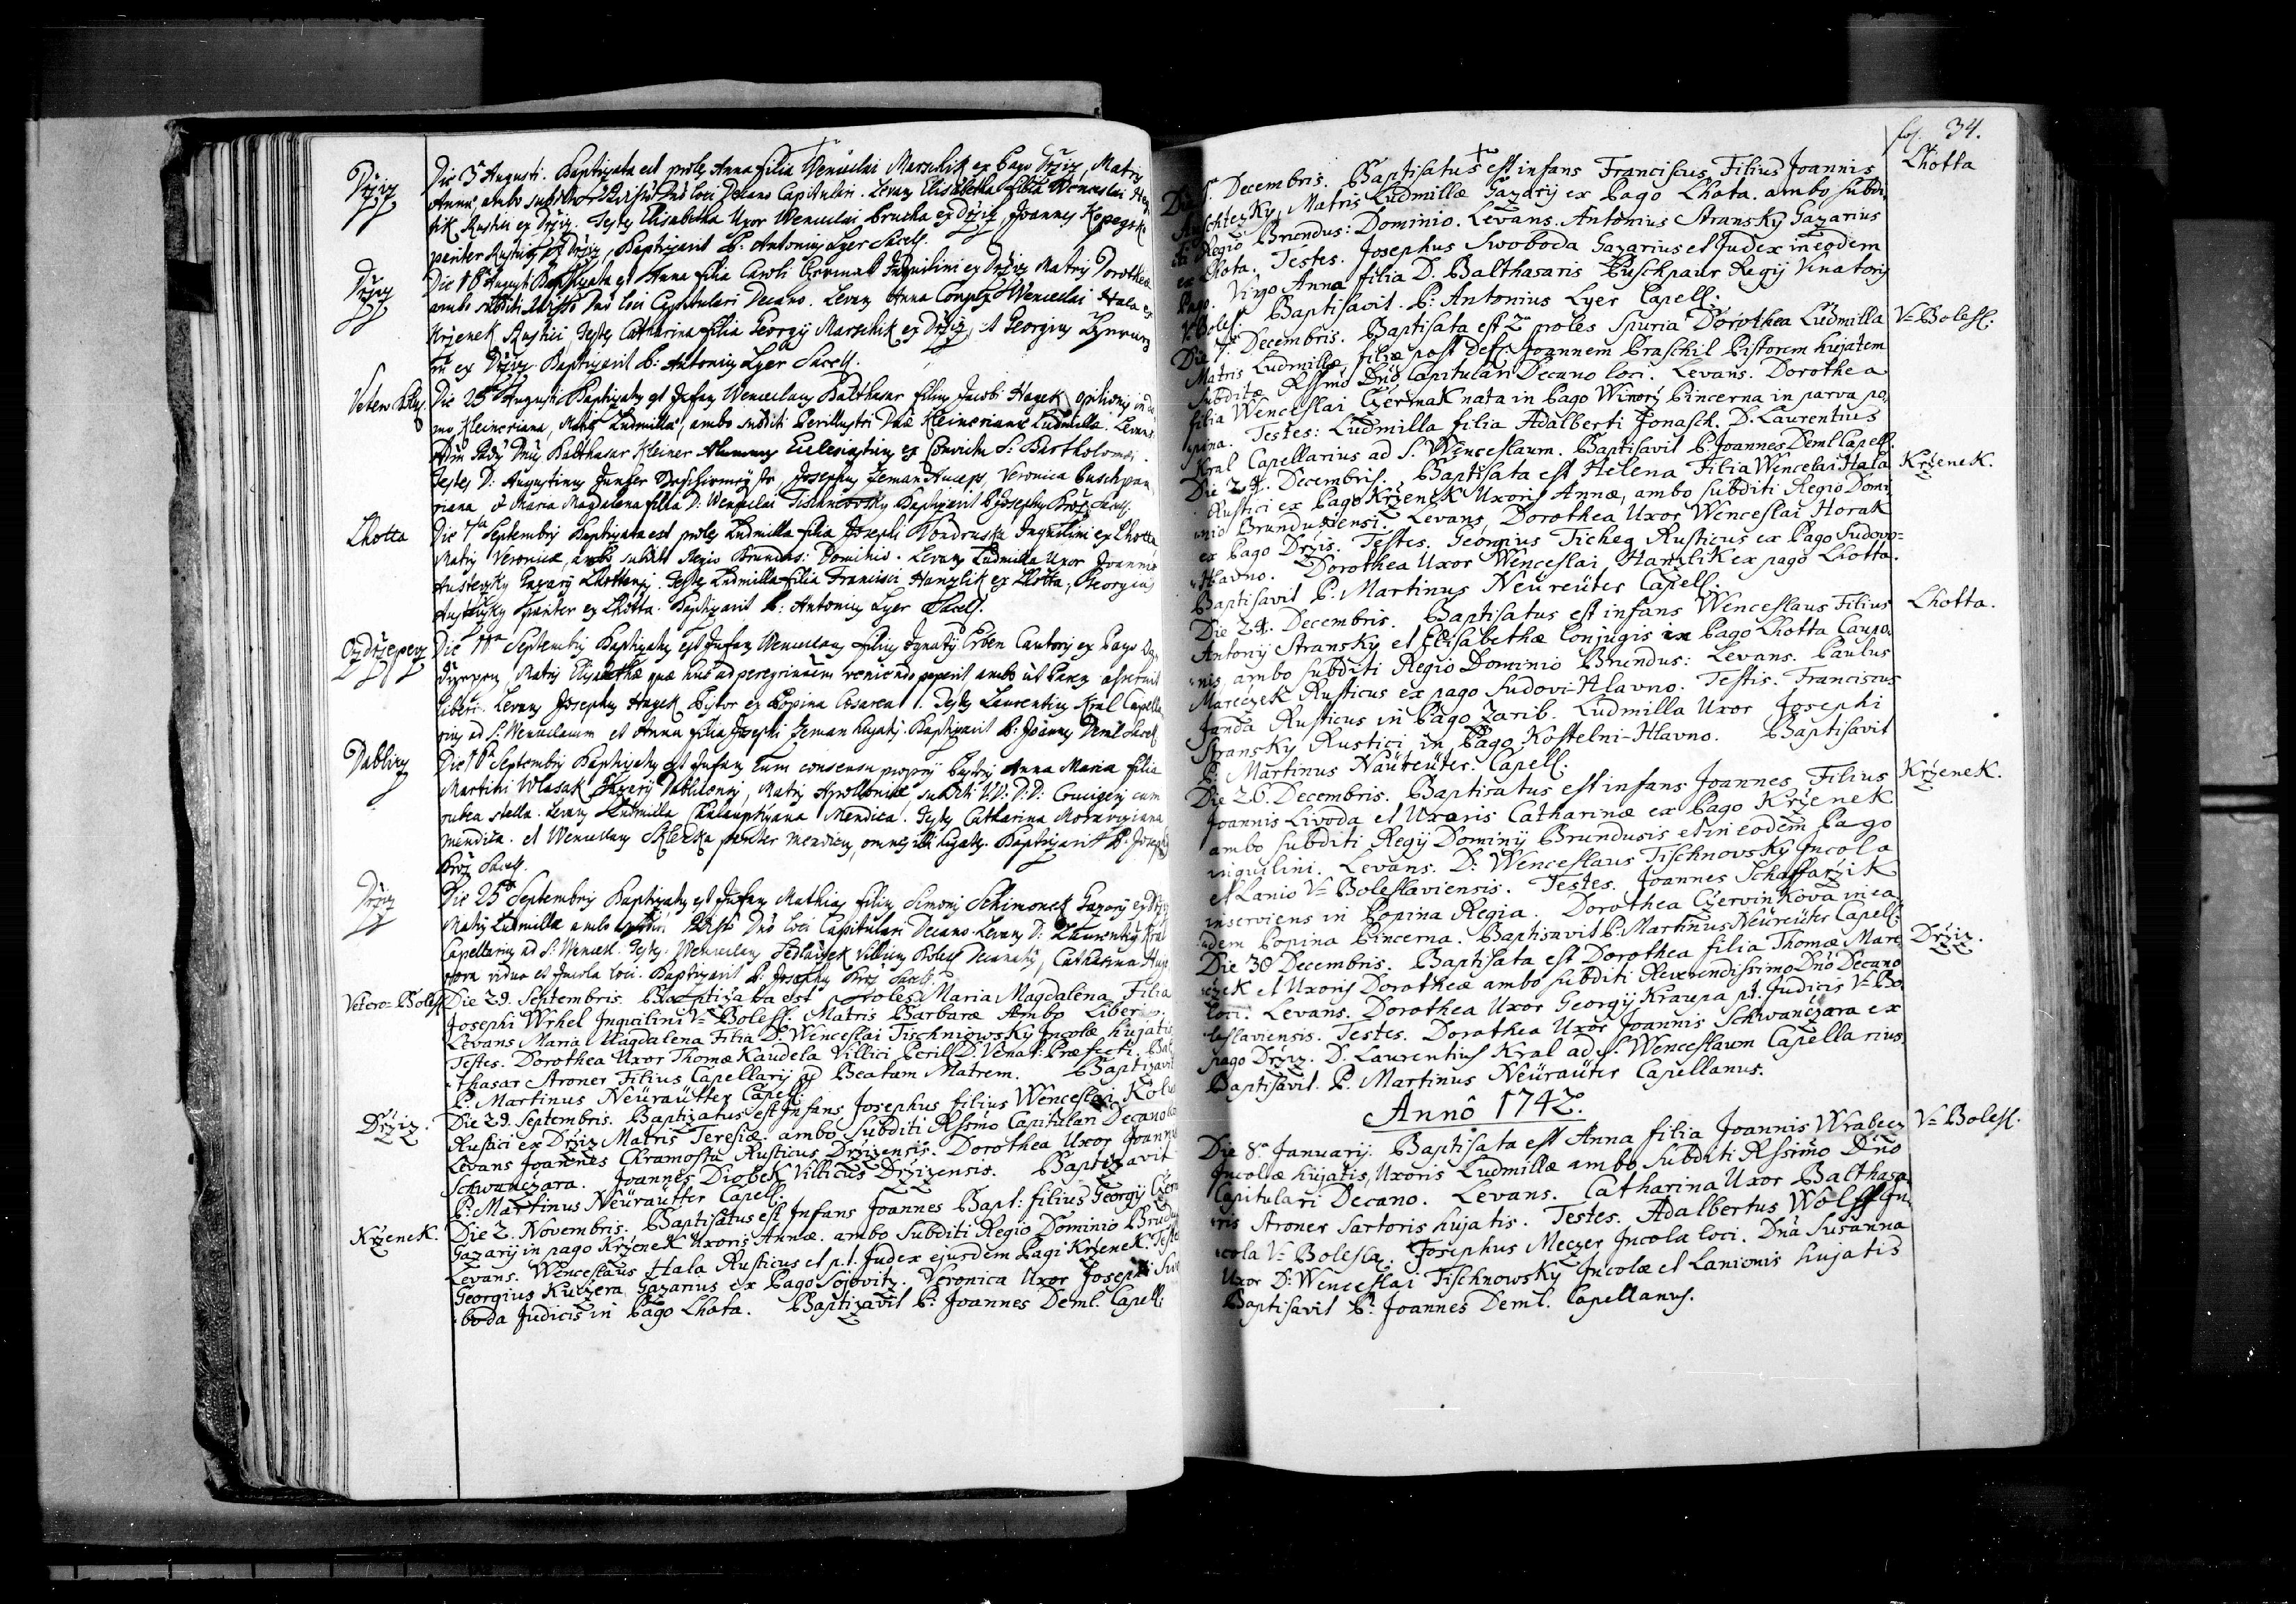 Držiz
Die 3 Augusti. Baptizata est proles Anna filia Wenceslai Marschik ex Pago Držiz, Matris
Annæ, ambo subditi Dnô loci Decano Capitulari. Levans Elisabetha filia Wenceslai
Rustici ex Držiz. Testes Elisabetha Uxor Wenceslai Brucha ex Držiz, Joannes
pariter Rusticus ex Držiz, Baptizavit P. Antonius Lyer Sacell.
Držiz
Die 10 Augusti Baptizata est Anna filia Caroli Czermak Inquilini ex Držiz Matris Dorotheæ
ambo subditi Dnô loci Capitulari Decano. Levans Anna Conjux Wenceslai Hala ex
Krženek Rustici, Testes Catharina filia Georgij Marschik ex Držiz, et Georgius
ex Držiz. Baptizavit P. Antonius Lyer Sacell.
Die 25 Augusti Baptizatus est Infans Wenceslaus Balthasar filius Jacobi Hagek
Kleineriana, Matris Ludmillæ, ambo subditi Perillustri Dnæ Kleinerianæ Ludmilla. Levans
Dnus Balthasar Kleiner Alumnus Ecclesiasticus ex Convictu S. Bartholomæi.
Testes D. Augustinus Junker Josephus Zeman Auceps, Veronica Puschpau,
riana, et Maria Magdalena filia D. Wenceslai Tischniovsky Baptizavit P. Josephus Brož Sacell.
Lhotta
Die 7 Septembris Baptizata est proles Ludmilla filia Josephi Vondruska Inquilini ex Lhotta,
Matris Veronicæ, ambo subditi Regio Brundus: Dominio. Levans Ludmilla Uxor Joannis
Austezky Gazarij Lhottensis. Testes Ludmilla filia Francisci Hanzlik ex Lhotta, Georgius
pariter ex Lhotta. Baptizavit P. Antonius Lyer Sacell.
Die 11 Septembris Baptizatus est Infans Wenceslaus filius Ignatij Erben Cantoris ex Pago
Matris Elisabethæ quæ huc ad peregrinandum veniendo peperit ambo ut Pater asseruit
liberi. Levans Josephus Hagek Pistor ex Popina Cæsarea. Testes Laurentius Kral Capella
rius ad S. Wenceslaum et Anna filia Josephi Zeman hujatis. Baptizavit P. Joannes Deml Sacell.
Dablizy
Die 16 Septembris Baptizatus est Infans Cum consensu proprij Pastoris Anna Maria filia
Martini Wlasak Dablicensis, Matris Apolloniæ subditi Crucigeris cum
rubea stella. Levans Ludmilla Mendica. Testes Catharina
mendica. et Wenceslaus Sklenka pariter mendicus, omnes illi hujates. Baptizavit P. Josephus
Brož Sacell.
Držiz
Die 25 Septembris Baptizatus est Infans Mathias filius Simonis Schimonek Gazarij ex Držiz
Matris Ludmillæ ambo subditi Dnô loci Capitulari Decano. Levans D: Laurentius Kral
Capellarius ad S: Wencesl. Testes. Wenceslaus Sedlaczek Villicus Decanatus, Catharina
vidua et Incola loci. Baptizavit P. Josephus Brož Sacell.
Vetero-Bolesl.
Die 29. Septembris. Baptizata est Proles Maria Magdalena Filia
Josephi Wrhel Inquilini V= Bolesl. Matris Barbaræ Ambo Liberi.
Levans Maria Magdalena Filia D. Wenceslai Tischniowsky Incolæ hujatis.
Testes. Dorothea Uxor Thomæ Kaudela Villici Perill. D. Venat: Præfecti. Bal
thasar Stroner Filius Capellarij ad Beatam Matrem. Baptizavit
P. Martinus Neürautter Capell.
Držiz.
Die 29. Septembris. Baptizatus est Infans Josephus filius Wenceslai
Rustici ex Držiz Matris Teresiæ. ambo Subditi Rssimo Capitulari Decano
Levans Joannes Chramosta Rusticus Držizensis. Dorothea Uxor Joannis
Schwanczara. Joannes Diobek Villicus Držizensis. Baptizavit
P. Martinus Neürautter Capell.
Krženek.
Die 2. Novembris. Baptisatus est Infans Joannes Bapt: filius Georgij
Gazarij in pago Krženek Uxoris Annæ. ambo Subditi Regio Dominio
Levans. Wenceslaus Hala Rusticus et p.t. Judex ejusdem Pagi Krženek. Testes
Georgius Kuczera Gazarius ex Pago Sojovitz. Veronica Uxor Josephi Swo
boda Judicis in Pago Lhota. Baptizavit P. Joannes Deml. Capell.
fol. 34.
Lhotta
Decembris. Baptisatus est infans Franciscus Filius Joannis
Matris Ludmillæ Gazarij ex Pago Lhota. ambo Subdi
ti Regio Brundus: Dominio. Levans. Antonius Stransky Gazarius
ex Lhota. Testes. Josephus Swoboda Gazarius et Judex in eodem
Pago. Virgo Anna filia D. Balthasaris Puschpaur Regij Venatoris
V. Bolesl. Baptisavit. P. Antonius Lyer Capell.
V= Bolesl.
Die 7. Decembris. Baptisata est 2a proles Spuria Dorothea Ludmilla
Matris Ludmillæ, filiæ post Deff. Joannem Praschil Pistorem hujatem
Subditæ Rssimo Dnô Capitulari Decano loci. Levans. Dorothea
filia Wenceslai Czermak nata in Pago Winorz Pincerna in parva po,
pina. Testes: Ludmilla filia Adalberti Jonasch. D. Laurentius
Kral Capellarius ad S. Wenceslaum. Baptisavit P. Joannes Deml Capell.
Krženek.
Die 24. Decembris. Baptisata est Helena Filia Wenceslai Hala
Rustici ex Pago Krženek Uxoris Annæ, ambo Subditi Regio Domi
nio Brundusiensi. Levans, Dorothea Uxor Wenceslai Horak
ex Pago Držis. Testes. Georgius Ticheg Rusticus ex Pago Sudovo=
Hlavno. Dorothea Uxor Wenceslai Hanzlik ex pago Lhotta.
Baptisavit P. Martinus Neüreüter Capell.
Lhotta.
Die 24. Decembris. Baptisatus est infans Wenceslaus Filius
Antonij Stransky et Elisabethæ Conjugis ex Pago Lhotta Caupo,
nis ambo Subditi Regio Dominio Brundus: Levans. Paulus
Mareczek Rusticus ex pago Sudovi-Hlavno. Testis. Franciscus
Janda Rusticus in Pago Zarib. Ludmilla Uxor Josephi
Stransky Rustici in Pago Kostelni-Hlavno. Baptisavit
P. Martinus Naüreüter. Capell.
Krženek.
Die 26. Decembris. Baptisatus est infans Joannes Filius
Joannis Livoda et Uxoris Catharinæ ex Pago Krženek
ambo Subditi Regij Dominij Brundusis et in eodem Pago
inquilini. Levans. D: Wenceslaus Tischnovsky Incola
et Lanio V= Boleslaviensis. Testes. Joannes Schaffarzik
inserviens in Popina Regia. Dorothea Czervinkova in ea
dem Popina Pincerna. Baptisavit P. Martinus Neüreüter Capell.
Držiz.
Die 30 Decembris. Baptisata est Dorothea filia Thomæ Mare
czek et Uxoris Dorotheæ ambo Subditi Reverendissimo Dnô Decano
loci. Levans. Dorothea Uxor Georgij Kraupa p.t. Judicis V= Bo
leslaviensis. Testes. Dorothea Uxor Joannis Schwanczara ex
pago Držiz. D. Laurentius Kral ad S. Wenceslaum Capellarius.
Baptisavit. P. Martinus Neüraüter Capellanus.
Annô 1742.
V= Bolesl.
Die 8. Januarij. Baptisata est Anna filia Joannis Wrabecz
Incolæ hujatis, Uxoris Ludmillæ ambo Subditi Rssimo Dnô
Capitulari Decano. Levans. Catharina Uxor Balthasa
ris Stroner Sartoris hujatis. Testes. Adalbertus Wolff In,
cola V= Bolesla. Josephus Meczer Incola loci. Dna Susanna
Uxor D: Wenceslai Tischnowsky Incolæ et Lanionis hujatis
Baptisavit P. Joannes Deml. Capellanus.